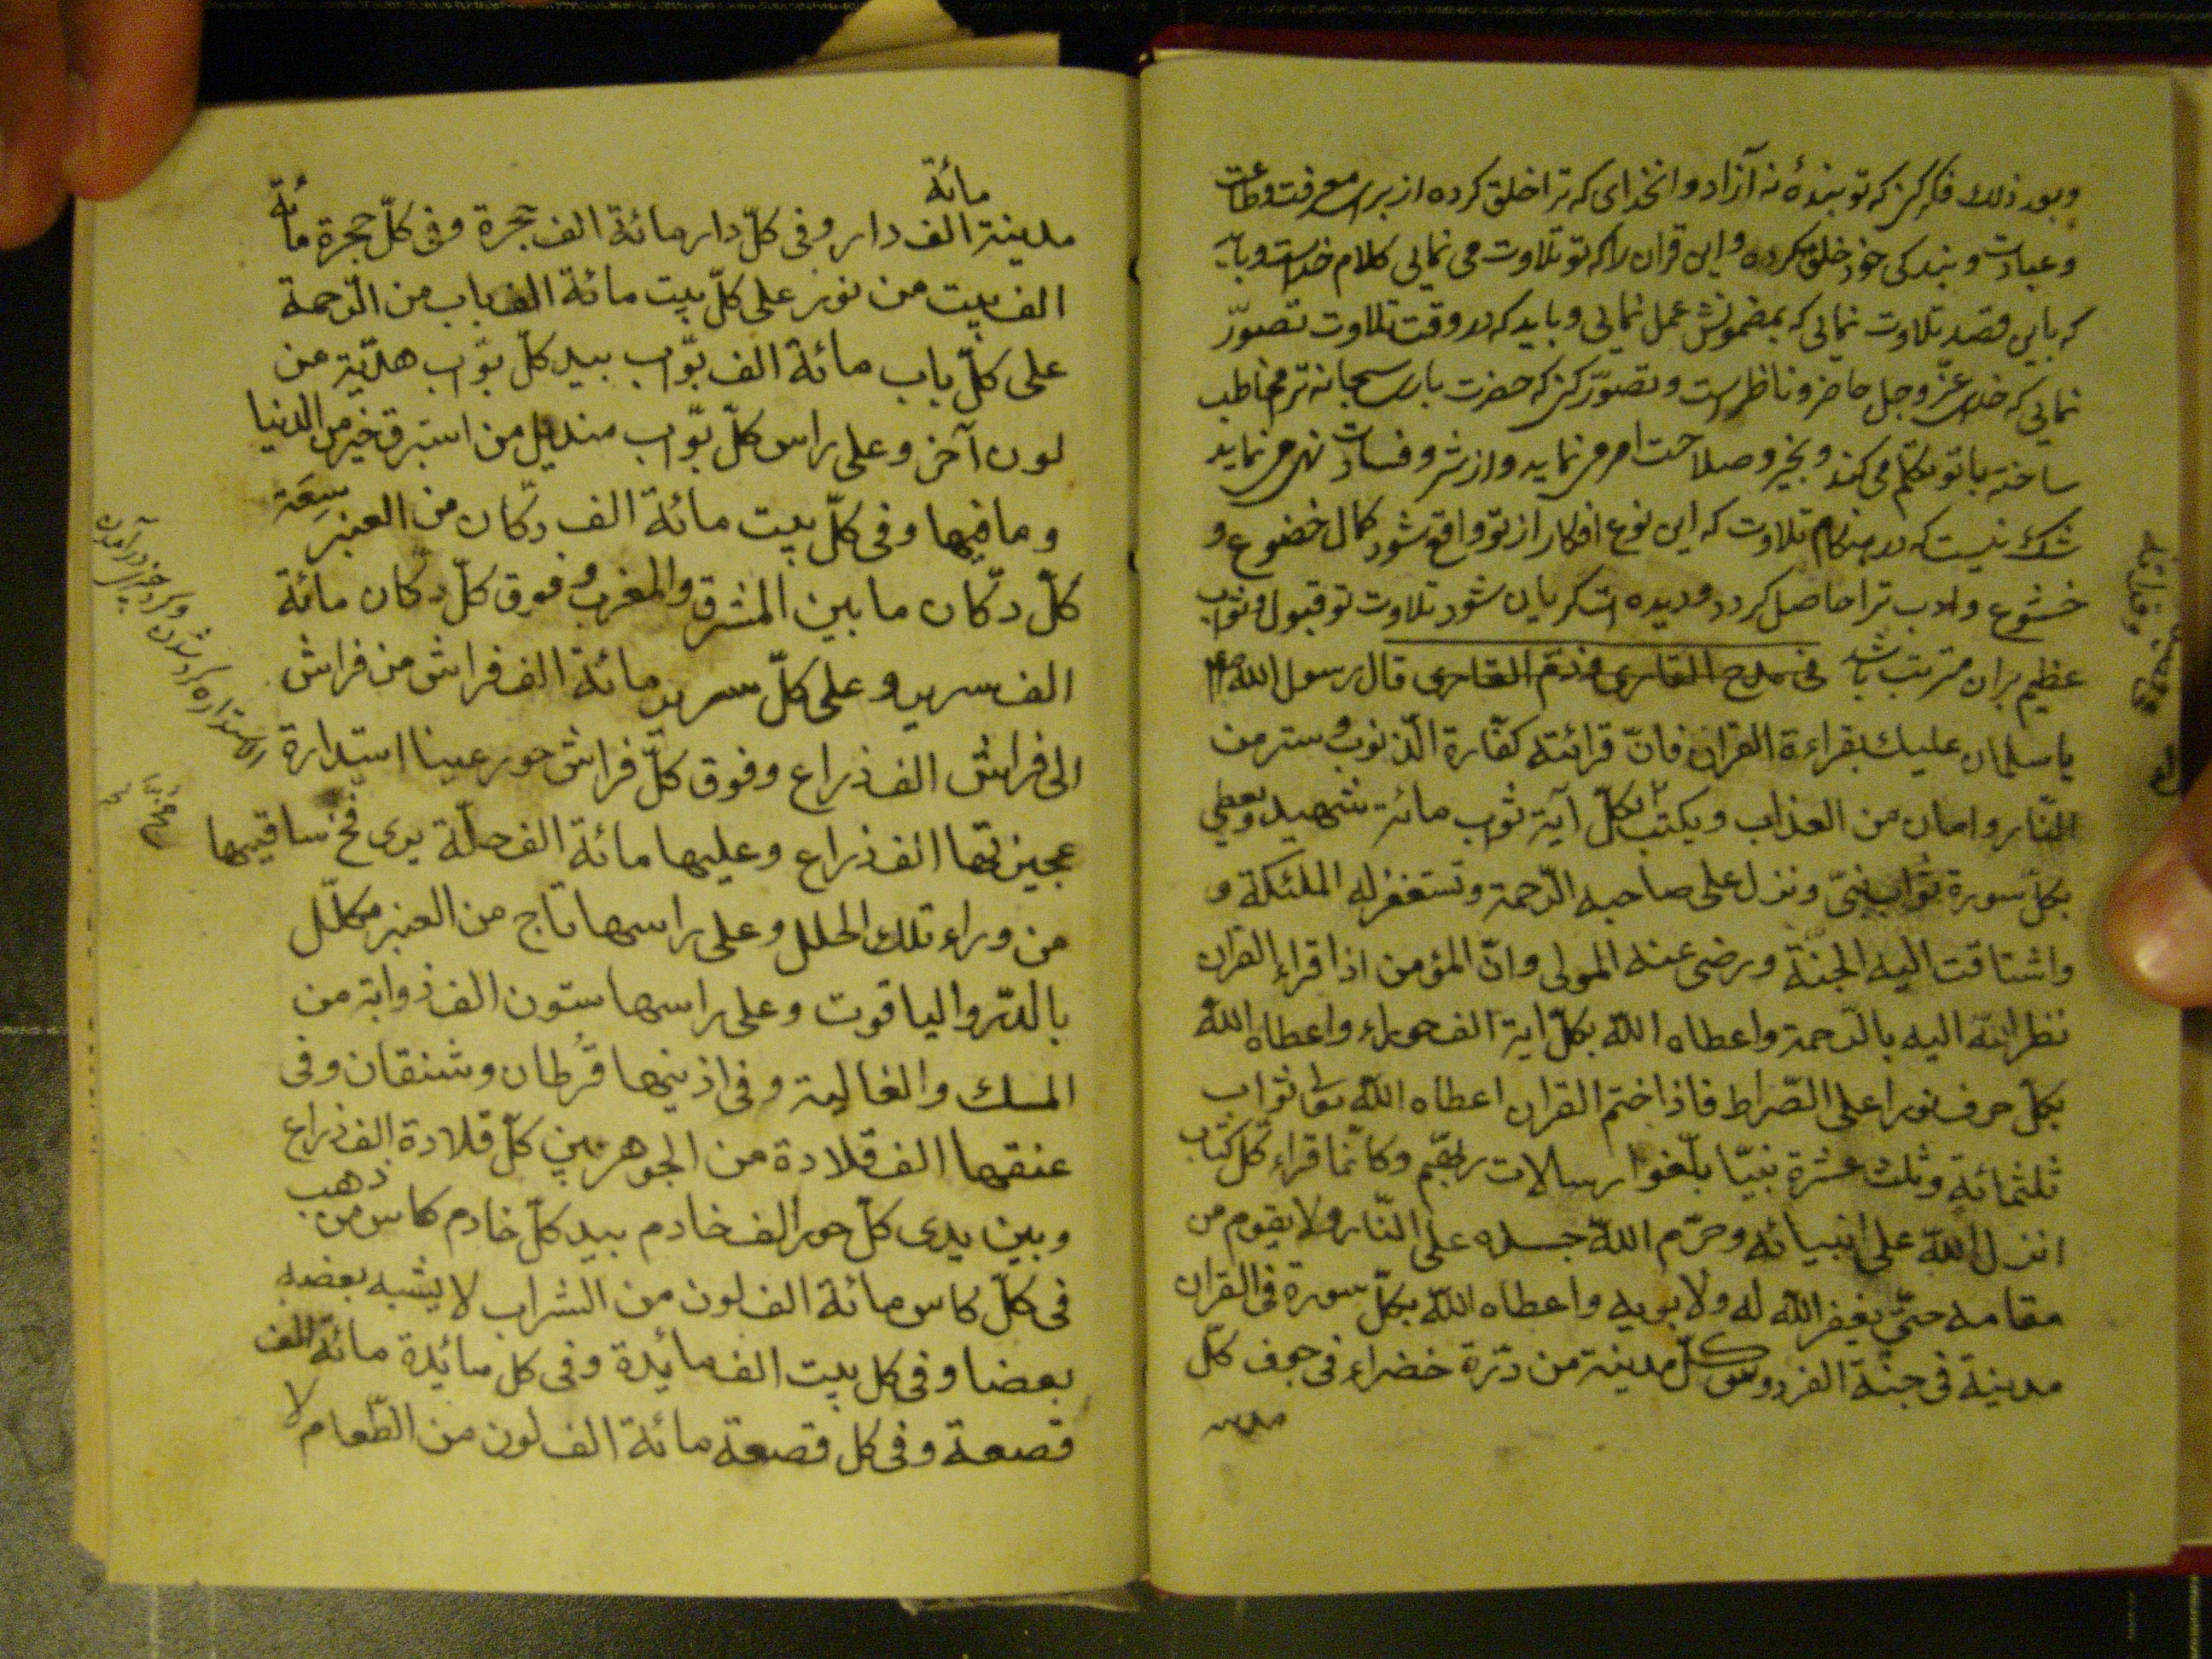 وبعد ذلك فکر کن که تو بندهٔ نه آزاد و آنخدای که ترا خلق کرده از برای معرفت و طاعت
و عبادت و بندکی خود خلق کرده و این قران را که تو تلاوت می نمایی کلام خداست و باید
که باین قصد تلاوت نمایی که بمضمونش عمل نمایی و باید که در وقت تلاوت تصوّر
نمایی که خدای عزّ وجل حاضر و ناظر است و تصوّر کن که حضرت باری سبحانه ترا مخاطب
ساخته با تو تکلّم می کند و بخیر و صلاحت امر می نماید و از شر و فسادت نهی می نماید
شک نیست که در هنکام تلاوت که این نوع افکار از تو واقع شود کمال خضوع و
خشوع و ادب ترا حاصل کردد و دیده ات کریان شود تلاوت تو قبول و ثواب
عظیم بران مترتب باشد فی مدح القاری و ذم القاری قال رسول الله
یا سلمان علیک بقراءة القران فانّ قرائته کفّارة الذّنوب و ستر من
النّار و امان من العذاب و یکتب بکلّ آیة ثواب مائة شهید و یعطی
بکلّ سورة ثواب نبیّ و نزل علی صاحبه الرّحمة و تستغفر له الملئکة و
واشتاقت الیه الجنّة و رضی عنه المولی و انّ المؤمن اذا قراء القران
نظر الله الیه بالرّحمة واعطاه الله بکلّ ایة الف حوراء واعطاه الله
بکلّ حرف نورا علی الصّراط فاذا ختم القران اعطاه الله ثواب
ثلثمائة وثلث عشرة نبیّا بلّغوا رسالات ربّهم وکانّما قراء کل کتاب
انزل الله علی انبیائه وحرّم الله جسده علی النّار ولا یقوم من
مقامه حتّی یغفر الله له ولابویه واعطاه الله بکلّ سورة فی القران
مدینة فی جنّة الفردوس کلّ مدینة من درّة خضراء فی جوف کلّ
مدینة
مائة
مدینة الف دار وفی کلّ دار مائة الف حجرة وفی کلّ حجرة مائة
الف بیت من نور علی کلّ بیت مائة الف باب من الرّحمة
علی کلّ باب مائة الف بوّاب بید کلّ بوّاب هدیّة من
لون آخر و علی راس کلّ بوّاب مندیل من استبرق خیر من الدنیا
وما فیها وفی کلّ بیت مائة الف دکّان من العنبر سعة
کلّ دکّان ما بین المشرق والمغرب و فوق کلّ دکّان مائة
الف سریر و علی کلّ سریر مائة الف فراش من فراش
الی فراش الف ذراع وفوق کلّ فراش حور عینا استدارة
عجیزتها الف ذراع وعلیها مائة الف حلّة یری مخّ ساقیها
من وراء تلک الحلل وعلی راسها تاج من العنبر مکلّل
بالدّر والیاقوت وعلی راسها ستون الف ذوابة من
المسک والغالیة وفی اذنیها قرطان وشنقان وفی
عنقها الف قلادة من الجوهر بین کلّ قلادة الف ذراع
وبین یدی کلّ حور الف خادم بید کلّ خادم کاس من ذهب
فی کلّ کاس مائة الف لون من الشراب لا یشبه بعضه
بعضا وفی کل بیت الف مائدة وفی کل مائدة مائة الف
قصعة وفی کل قصعة مائة الف لون من الطّعام لا